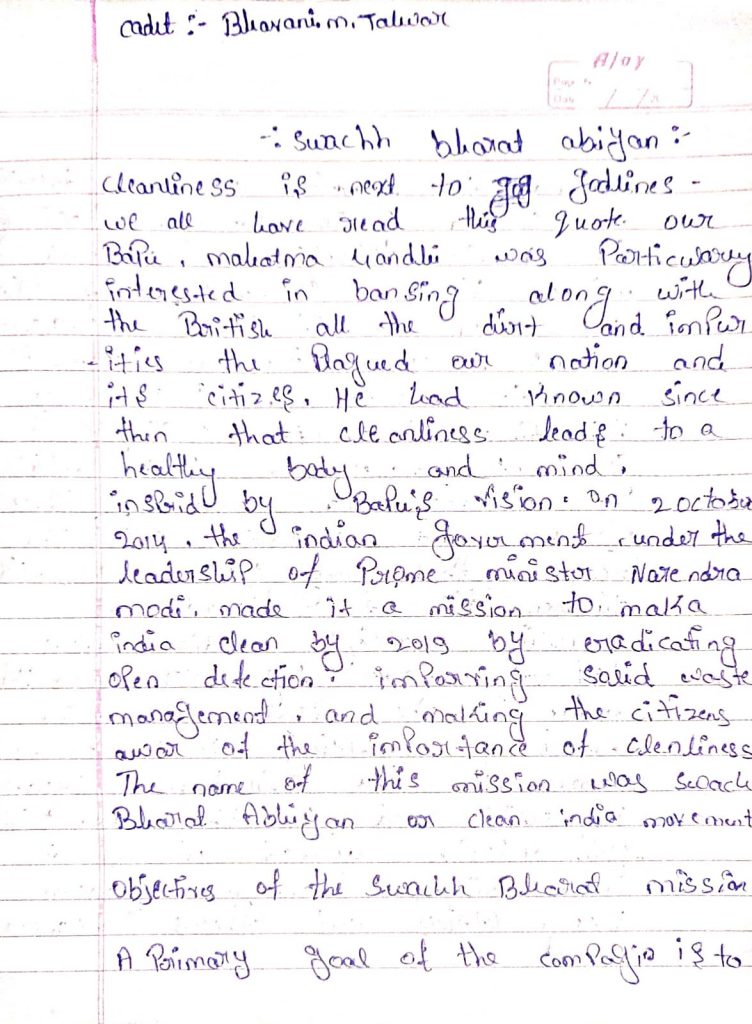 cadet :- Bhavani.m.Talwar
Ajay
Page No
Date / /
-: Swachh bharat abiyan :-
cleanliness is next to godlines -
we all have read this quote. our
Bapu, mahatma Gandhi was Particulary
interested in bansing along with
the British all the dirt and impur
-ities the Plagued our nation and
its citizes. He had known since
then that cleanliness leads to a
healthy body and mind.
inspid by Bapu's vision on 2 October
2014, the indian goverment, under the
leadership of Prime minister Narendra
modi, made it a mission to maka
india clean by 2019 by eradicating
open defection, imparving soild waste
management, and making the citizens
awar of the importance of clenliness
The name of this mission was swach
Bharat Abhiyan or clean india movement
objectives of the Swachh Bharat mission
A Primary goal of the compagin is to